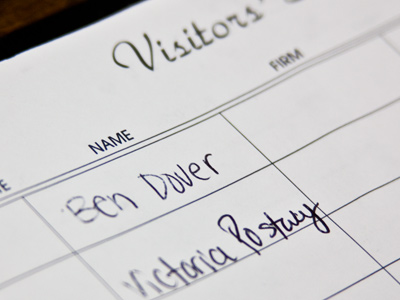 Visitors'
NAME
FIRM
Ben Dover
Victoria Rostwy